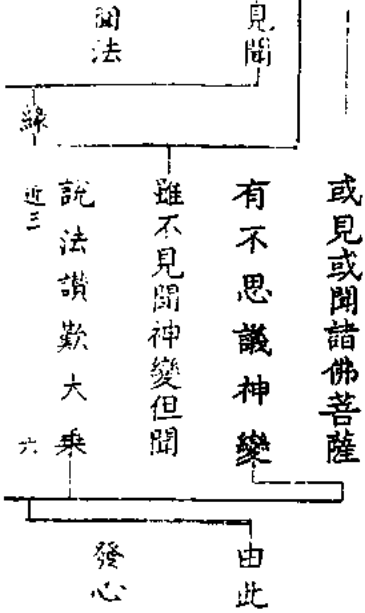 見聞
聞法
緣
或見或聞諸佛菩薩
有不思議神變
雖不見聞神變但聞
說法讚歎大乗
近三
六
由此
發心